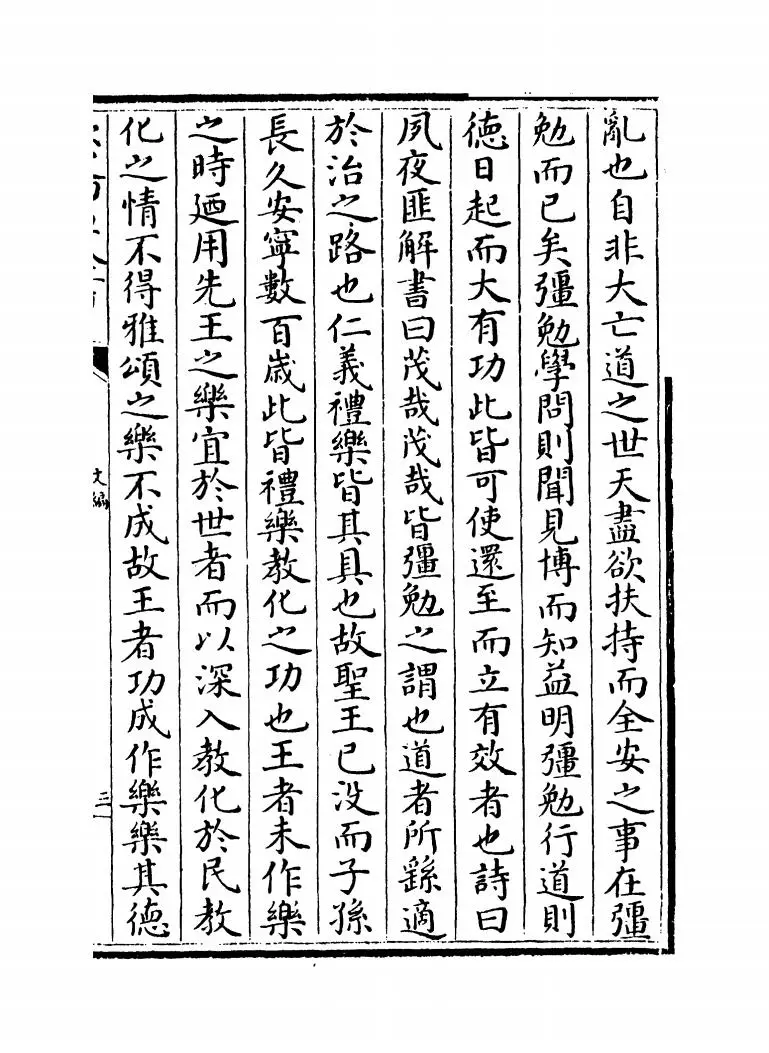 亂也自非大亡道之世天盡欲扶持而全安之事在彊
勉而已矣彊勉學問則聞見博而知益明彊勉行道則
德日起而大有功此皆可使還至而立有效者也詩曰
夙夜匪解書曰茂哉茂哉皆彊勉之謂也道者所繇適
於治之路也仁義禮樂皆其具也故聖王已没而子孫
長久安寧數百歲此皆禮樂教化之功也王者未作樂
之時廼用先王之樂宜於世者而以深入教化於民教
化之情不得雅頌之樂不成故王者功成作樂樂其德
文編